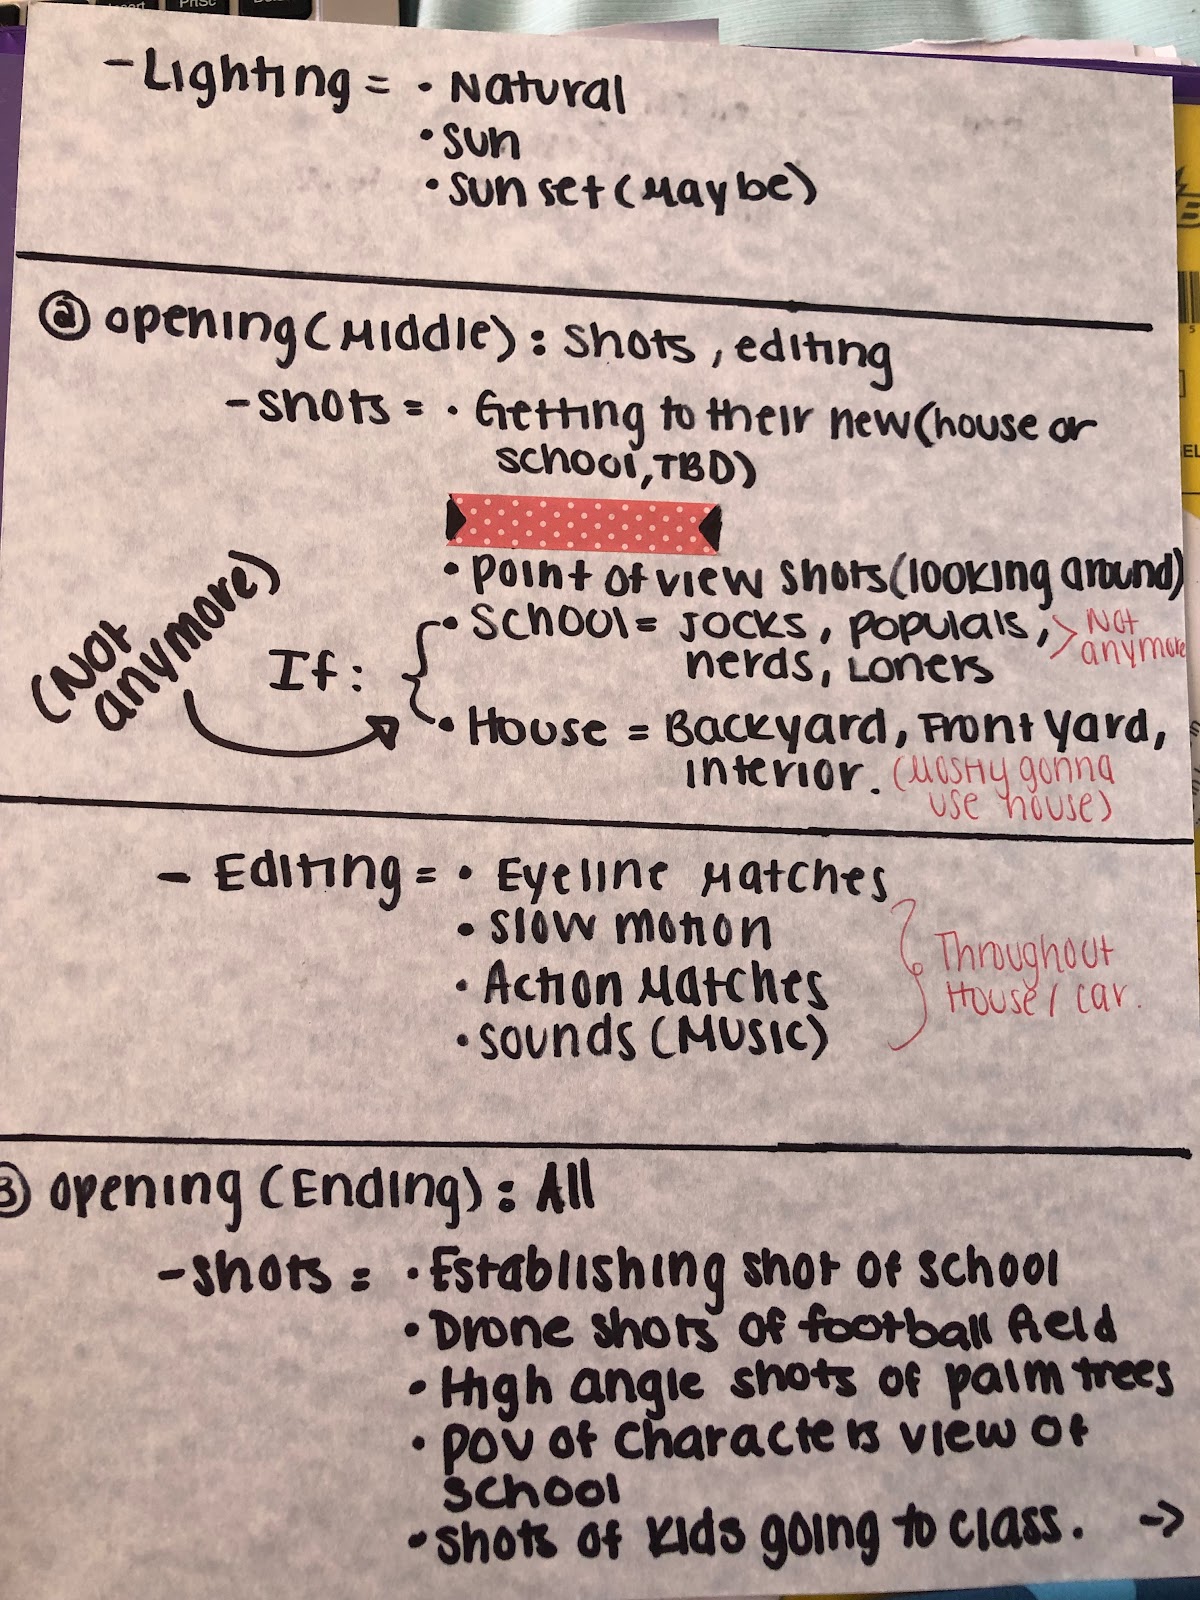 PrtSc
- Lighting = • Natural
• Sun
• Sun set (Maybe)
② opening (Middle) : Shots, editing
- shots = • Getting to their new (house or
school, TBD)
• Point of view shots (looking around)
(Not
anymore)
If :
• School = Jocks, Populars,
nerds, Loners
> Not
anymore
• House = Backyard, Front Yard,
interior. (Mostly gonna
use house)
- Editing = • Eyeline Matches
• Slow motion
• Action Matches
• Sounds (Music)
Throughout
House / car.
③ opening (Ending) : All
- shots = • Establishing shot of school
• Drone shots of football field
• High angle shots of palm trees
• POV of characters view of
school
• shots of kids going to class. →